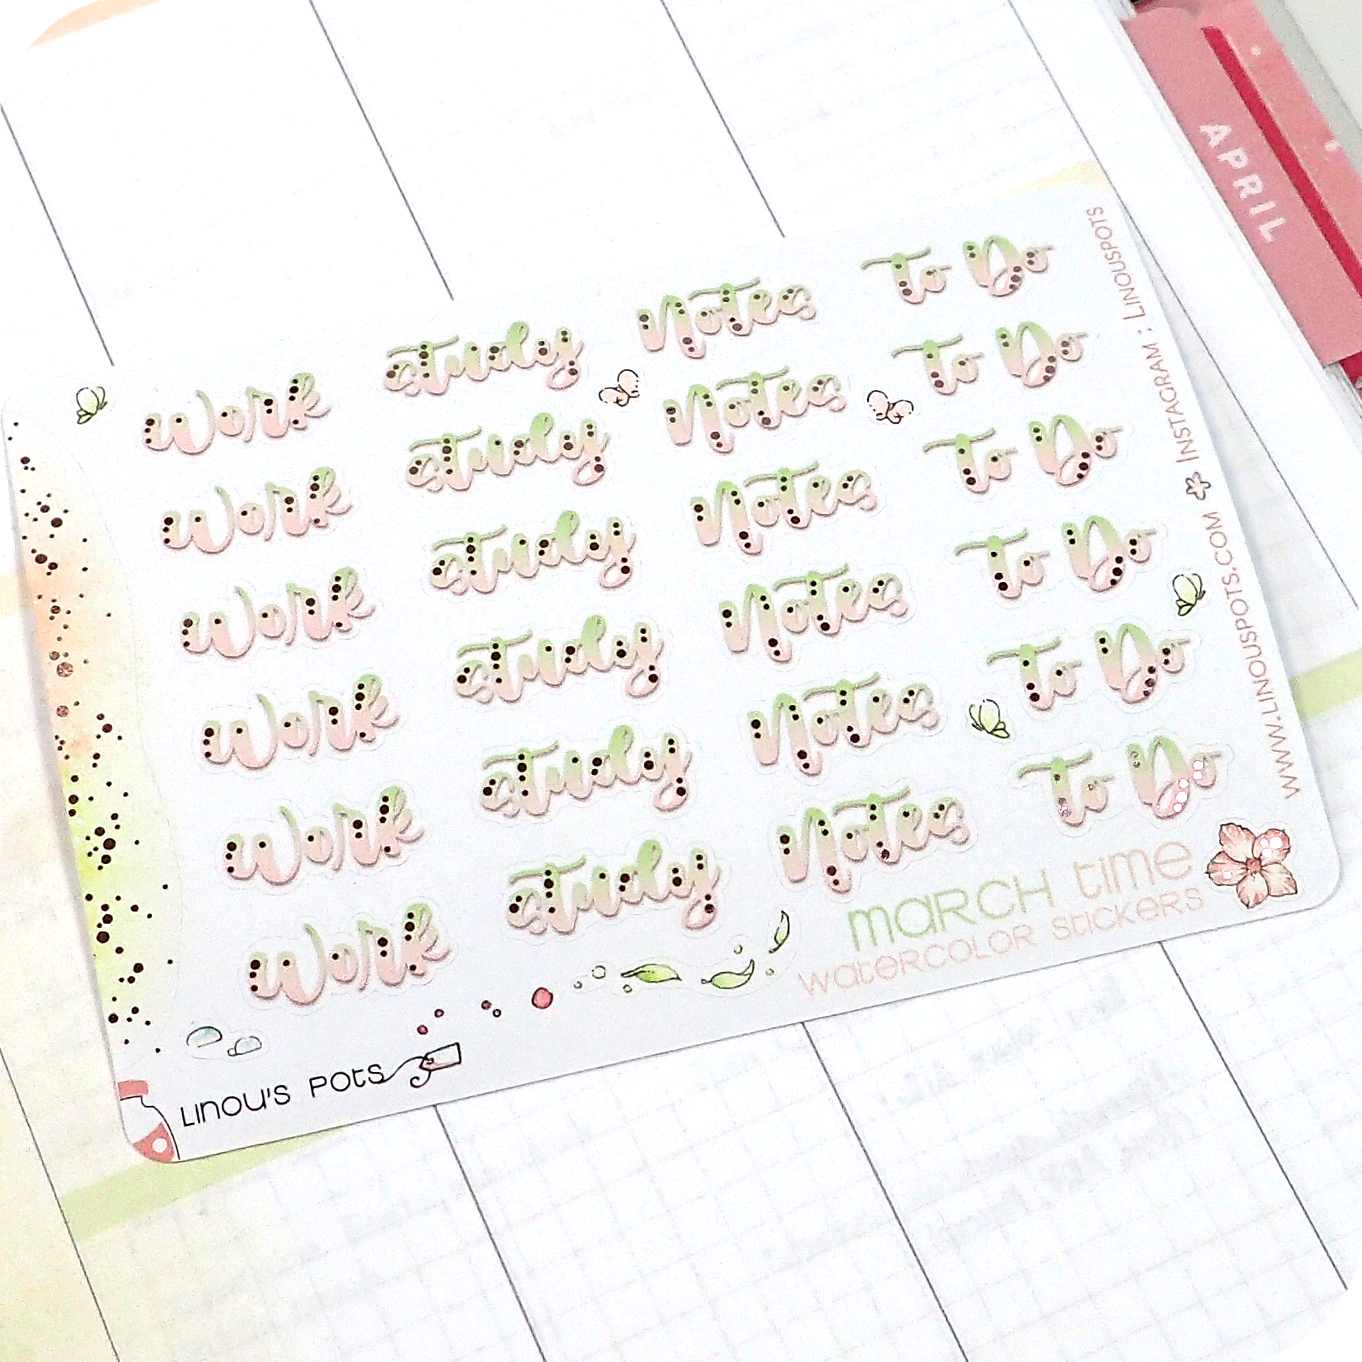 APRIL
Work study Notes to Do
Work study Notes to Do
Work study Notes to Do
Work study Notes to Do
Work study Notes to Do
Work study Notes to Do
maRCH time
WateRCOLOR StickeRS
LINOU'S POtS
WWW.LINOUSPOTS.COM INSTAGRAM : LINOUSPOTS